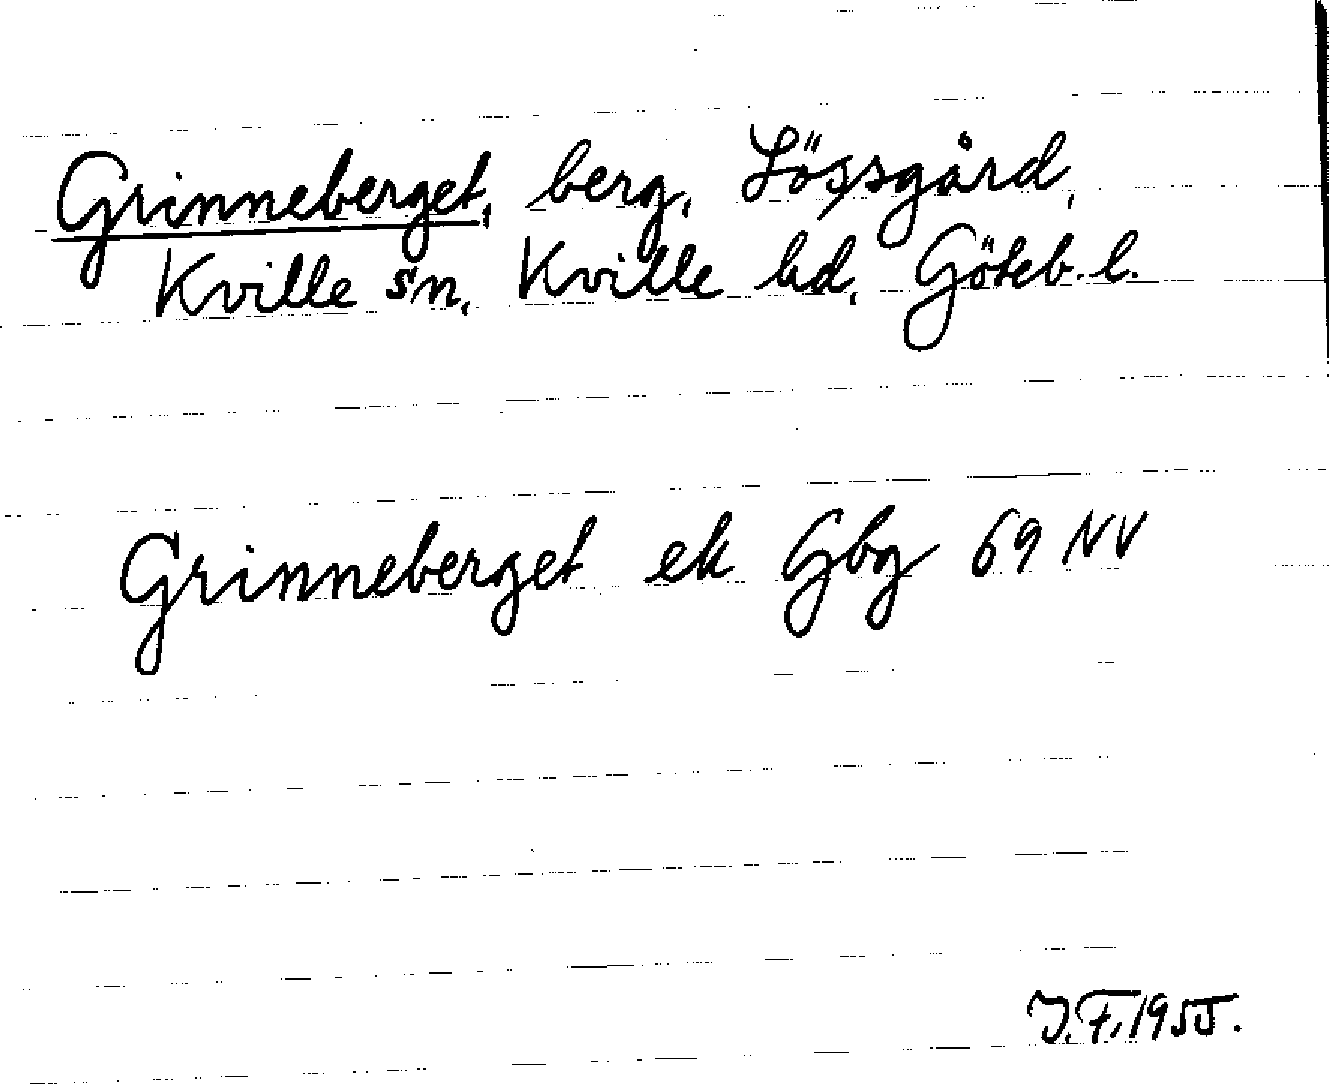 Grinneberget, berg, Lössgård,
Kville sn, Kville hd, Göteb. l.
Grinneberget ek Gbg 69 NV
J.F. 1955.